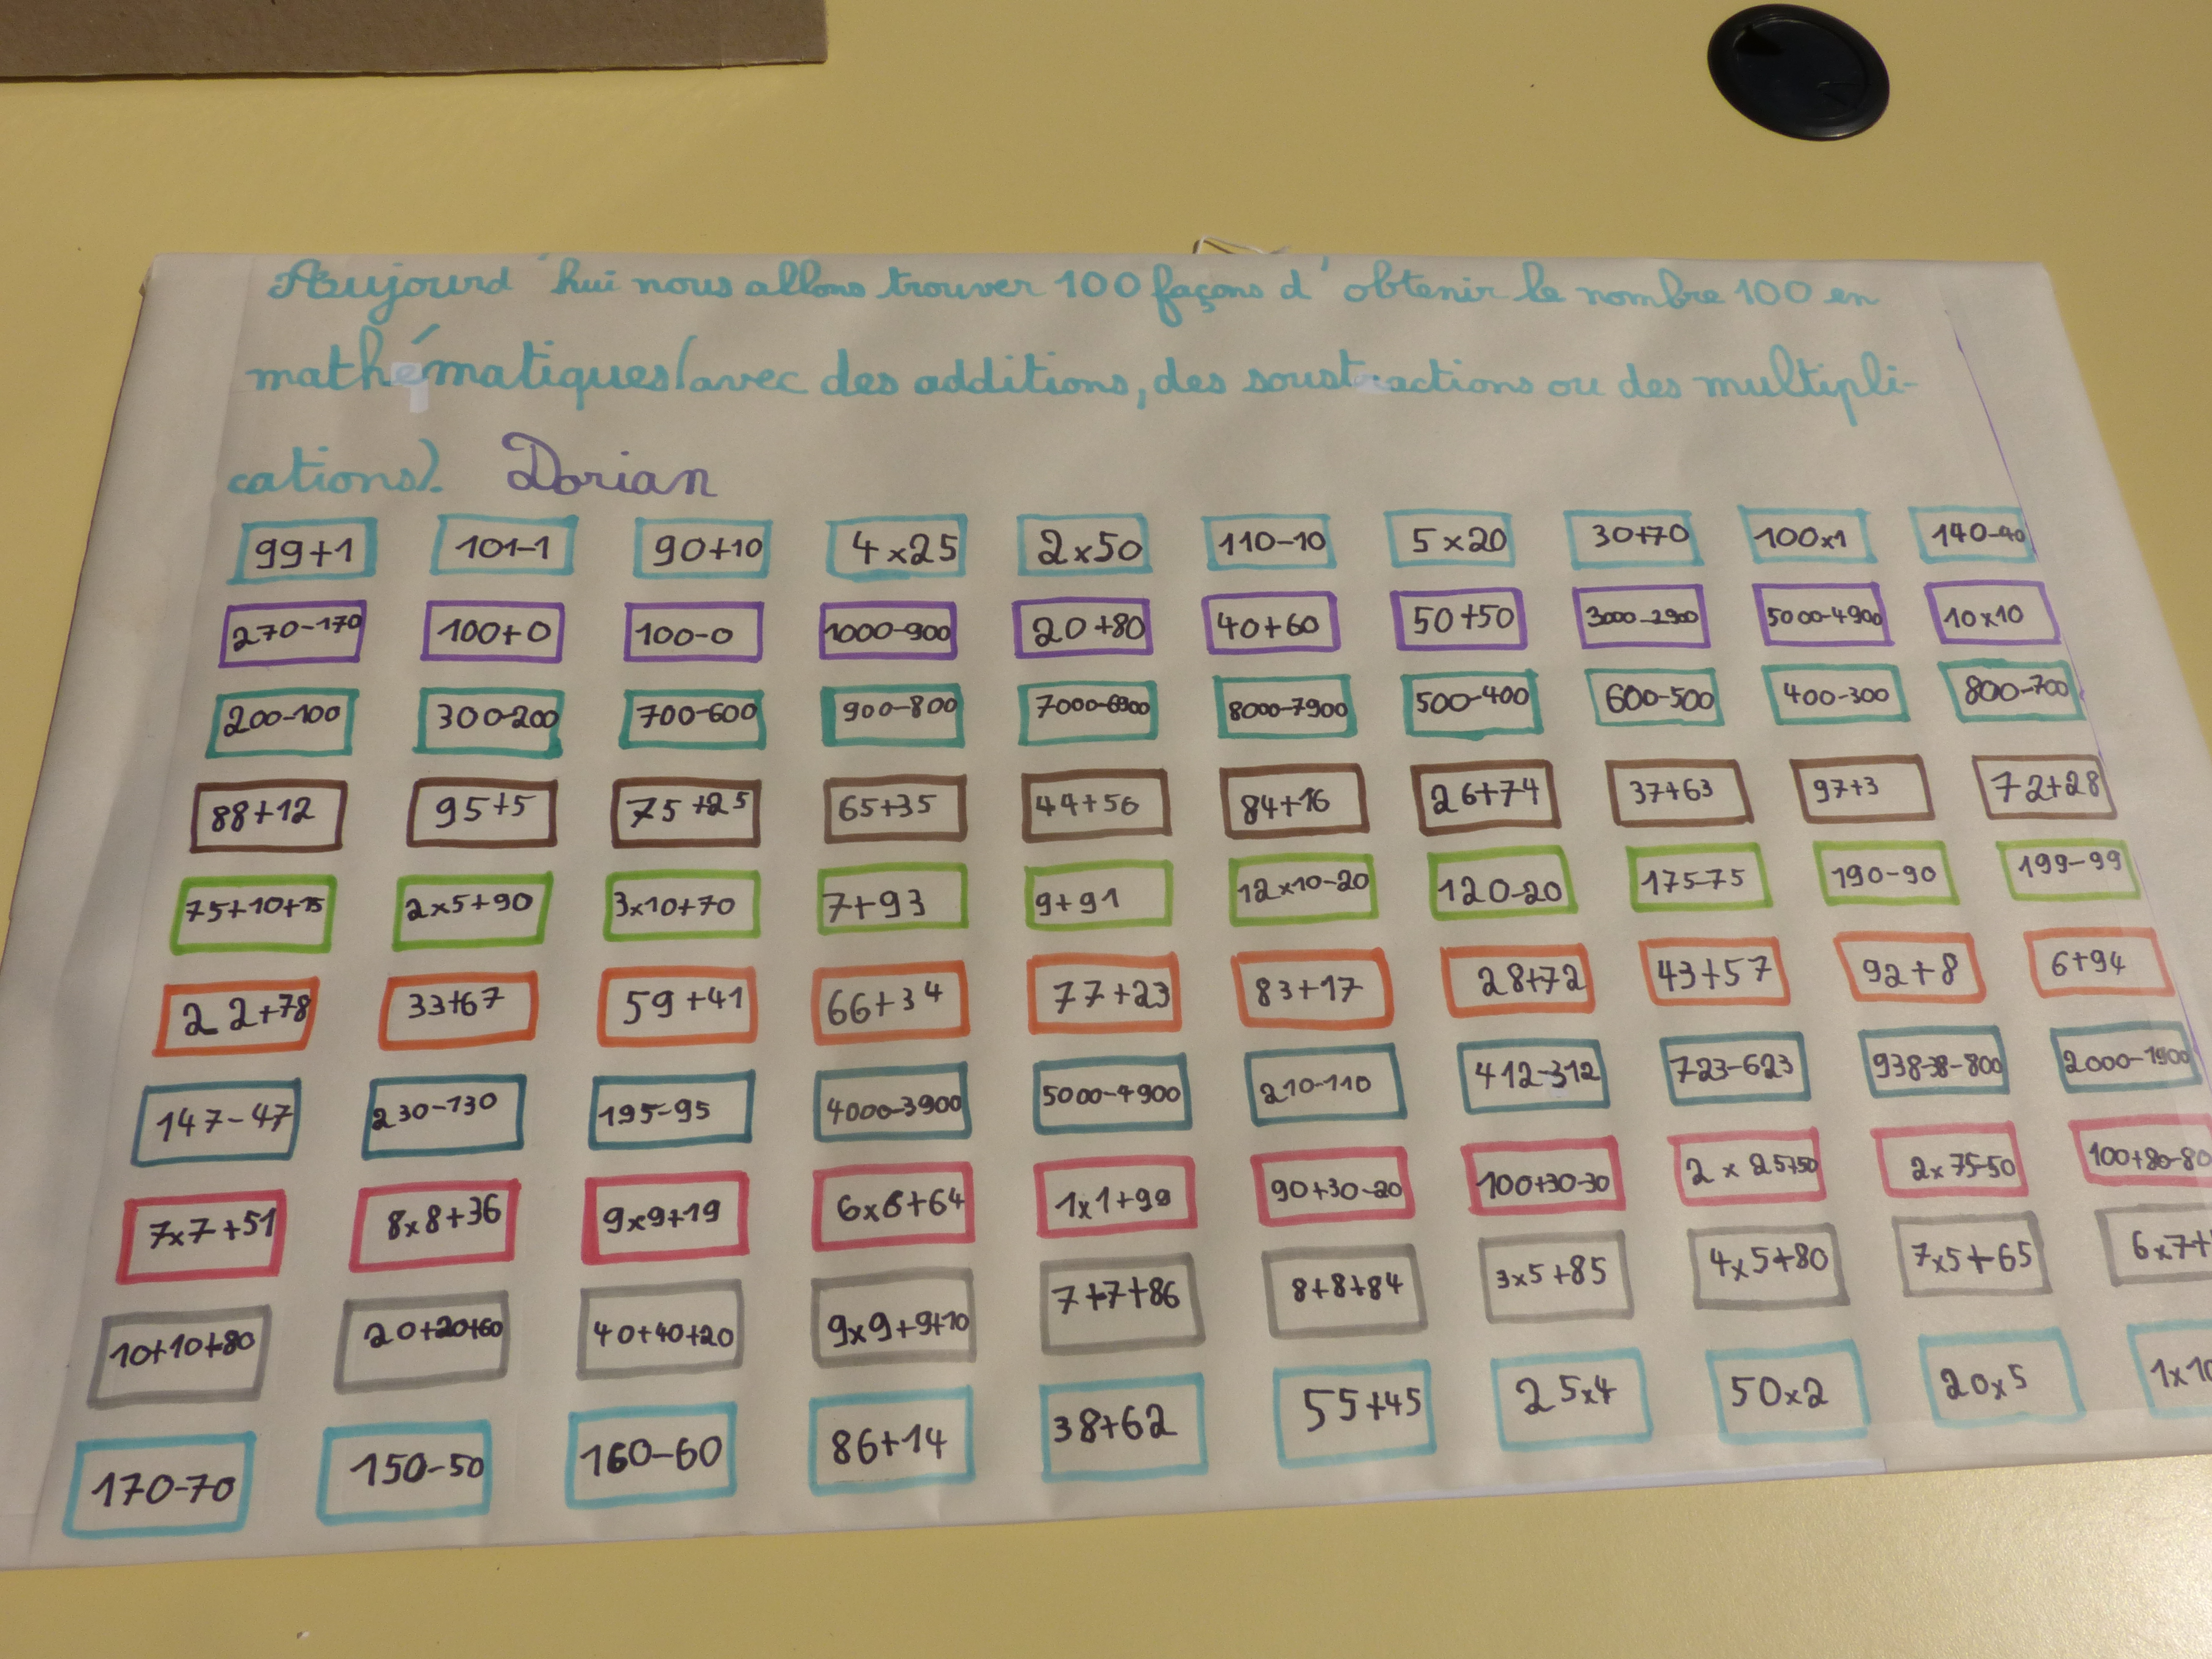 Aujourd'hui nous allons trouver 100 façons d'obtenir le nombre 100 en
mathématiques (avec des additions, des soustractions ou des multipli-
cations). Dorian
99+1 101-1 90+10 4x25 2x50 110-10 5x20 30+70 100x1 140-40
270-170 100+0 100-0 1000-900 20+80 40+60 50+50 3000-2900 5000-4900 10x10
200-100 300-200 700-600 900-800 7000-6900 8000-7900 500-400 600-500 400-300 800-700
88+12 95+5 75+25 65+35 44+56 84+16 26+74 37+63 97+3 72+28
75+10+15 2x5+90 3x10+70 7+93 9+91 12x10-20 120-20 175-75 190-90 199-99
22+78 33+67 59+41 66+34 77+23 83+17 28+72 43+57 92+8 6+94
147-47 230-130 195-95 4000-3900 5000-4900 210-110 412-312 723-623 938-38-800 2000-1900
7x7+51 8x8+36 9x9+19 6x6+64 1x1+99 90+30-20 100+30-30 2x25+50 2x75-50 100+80-80
10+10+80 20+20+60 40+40+20 9x9+9+10 7+7+86 8+8+84 3x5+85 4x5+80 7x5+65 6x7+
170-70 150-50 160-60 86+14 38+62 55+45 25x4 50x2 20x5 1x10